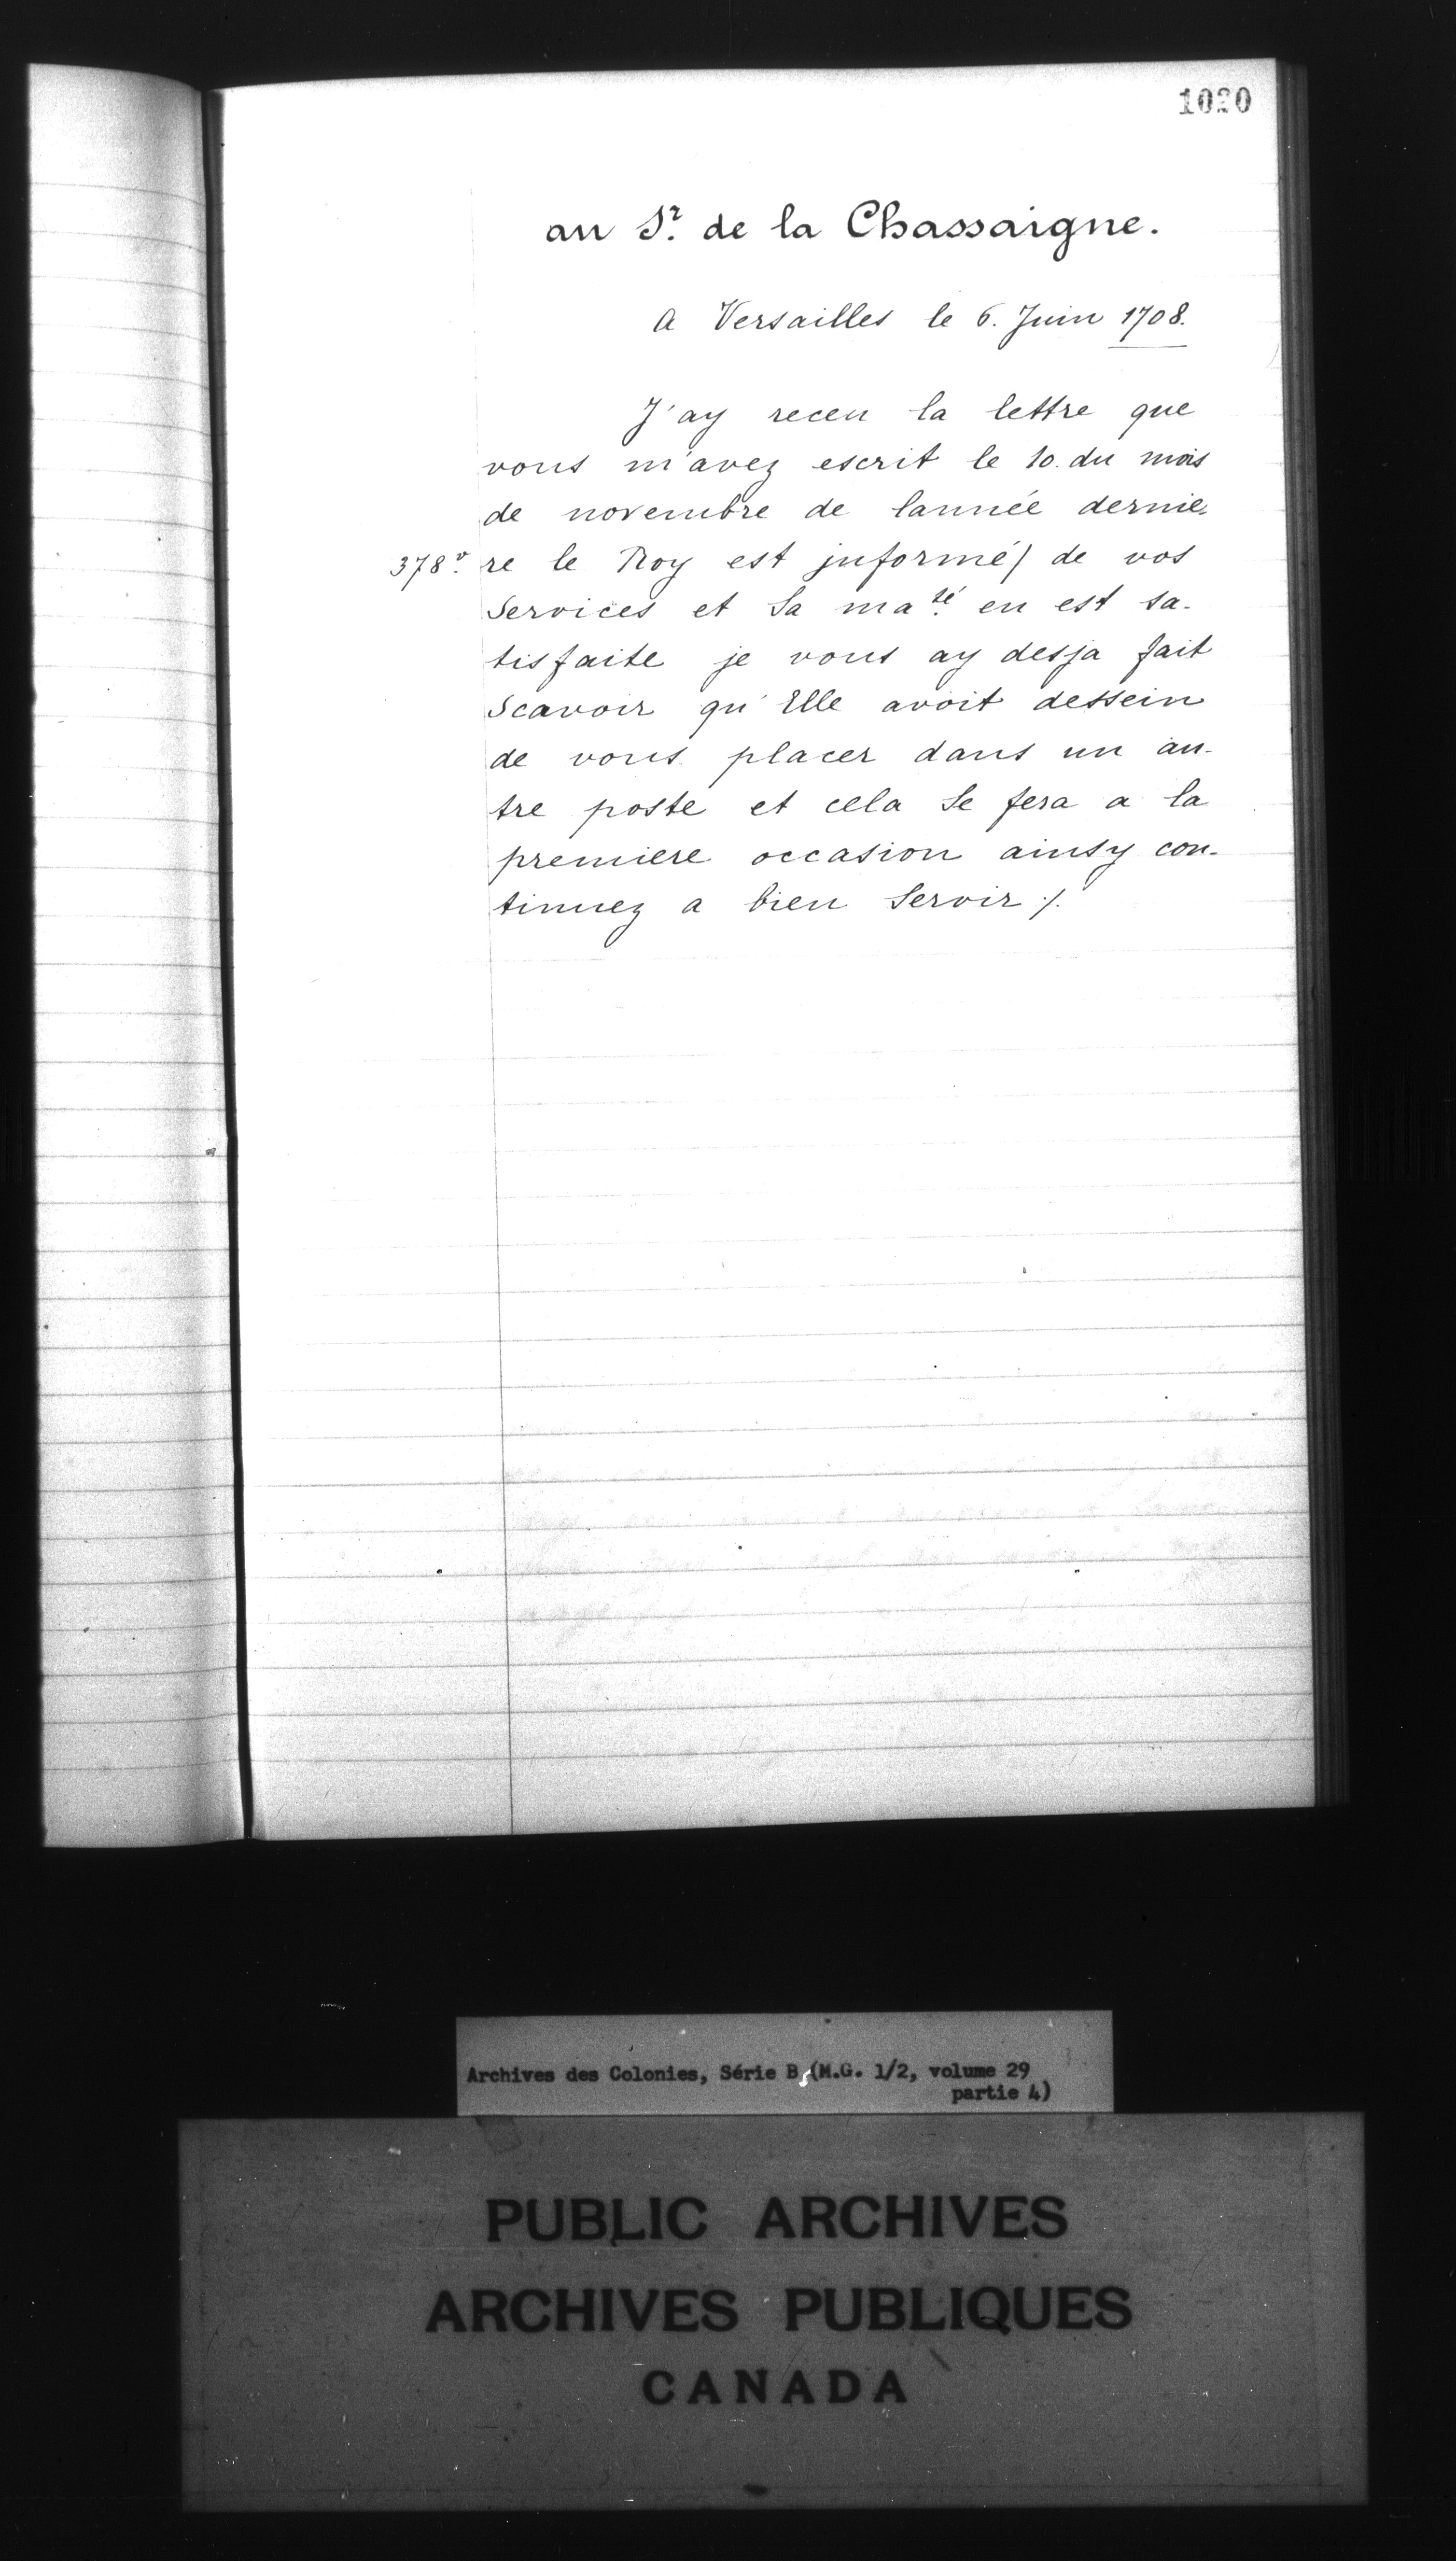 1020
au Sr. de la Chassaigne.
A Versailles le 6. Juin 1708.
J'ay receu la lettre que
vous m'avez escrit le 10. du mois
de novembre de lannée dernie-
378v. re le Roy est jnformé/ de vos
Services et Sa maté. en est sa-
tisfaite je vous ay desja fait
Scavoir qu'Elle avoit dessein
de vous placer dans un au-
tre poste et cela Se fera a la
premiere occasion ainsy con-
tinuez a bien Servir ./.
Archives des Colonies, Série B,(M.G. 1/2, volume 29
partie 4)
PUBLIC ARCHIVES
ARCHIVES PUBLIQUES
CANADA